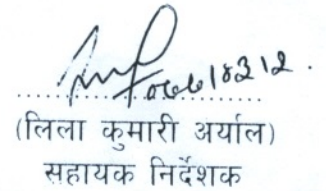 (लिला कुमारी अर्याल)
सहायक निर्देशक